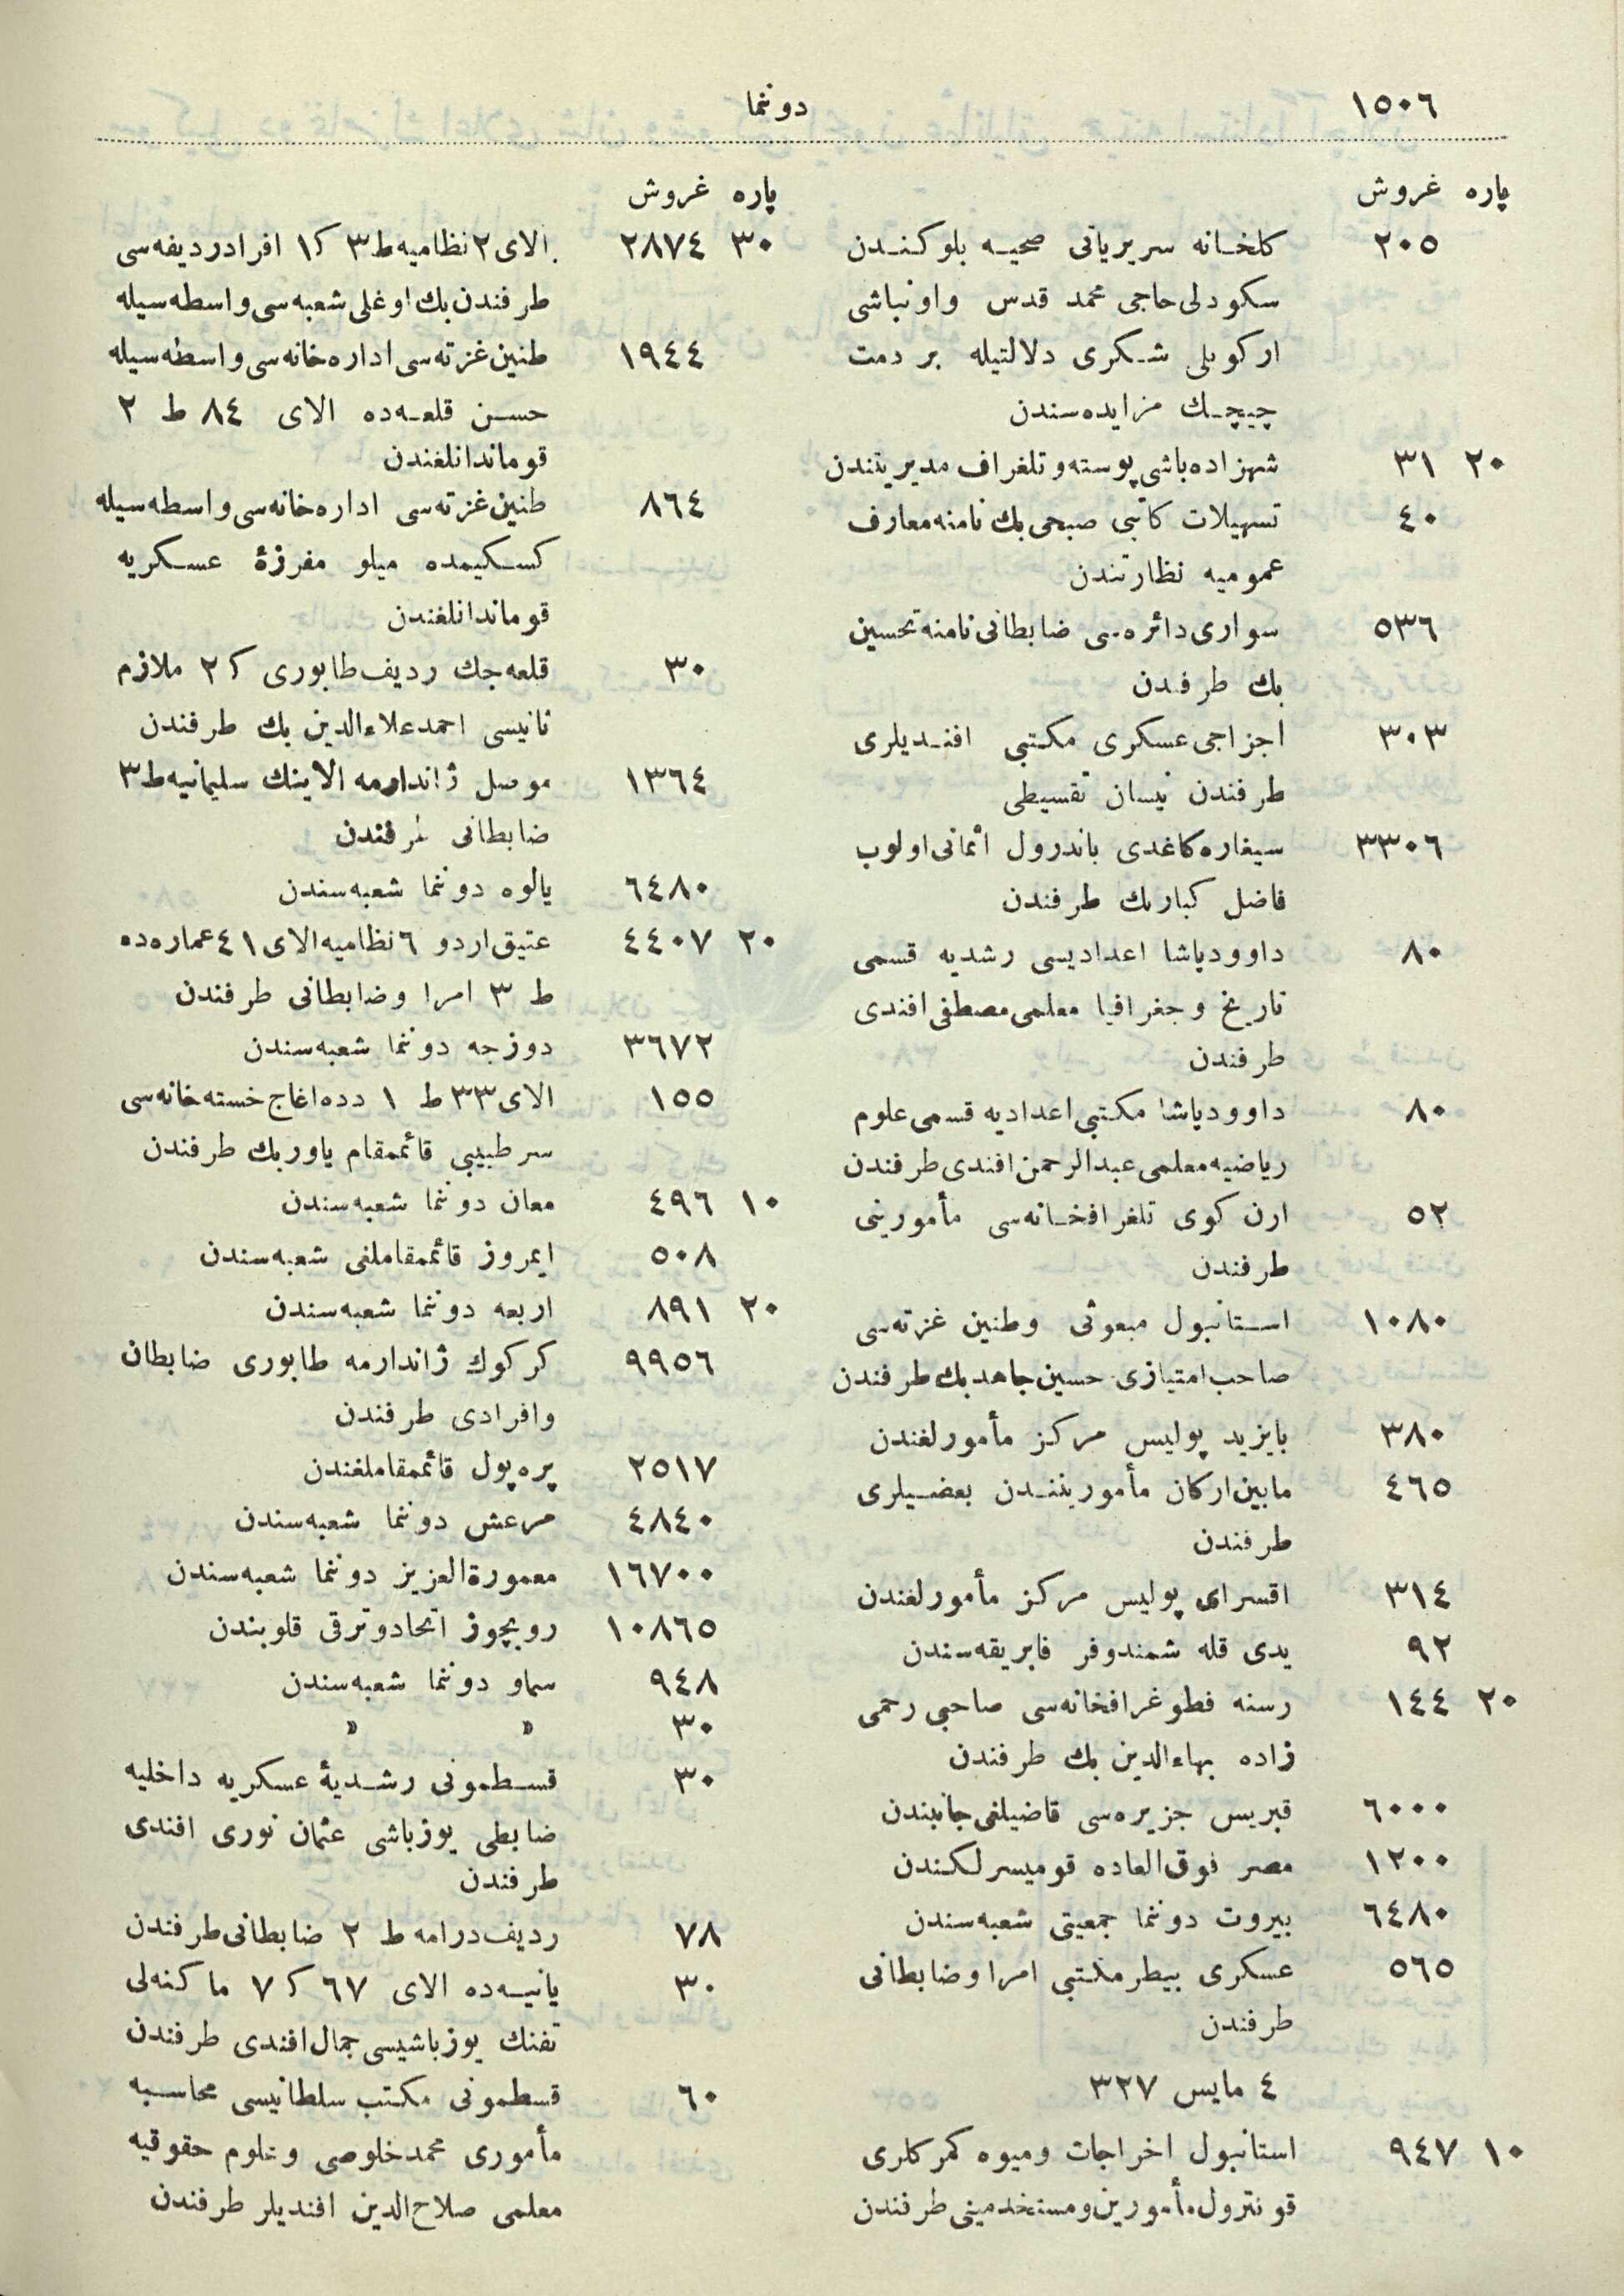 ١٥٠٦
دوننما
پاره غروش
٢٠٥ كلخانه سریریاتی صحیه بلوكندن
سكودلی حاجی محمد قدس واونباشی
اركوبلی شكری دلالتیله بر دمت
چیچك مزایده‌سندن
٢٠ ٣١ شهزاده‌باشی پوسته وتلغراف مدیریتندن
٤٠ تسهیلات كاتبی صبحی بك نامنه معارف
عمومیه نظارتندن
٥٣٦ سواری دائره‌سی ضابطانی نامنه تحسین
بك طرفدن
٣٠٣ اجزاجی عسكری مكتبی افندیلری
طرفندن نیسان تقسیطی
٣٣٠٦ سیغاره كاغدی باندرول اثمانی اولوب
فاضل كبار بك طرفندن
٨٠ داوودپاشا اعدادیسی رشدیه قسمی
تاریخ وجغرافیا معلمی مصطفی افندی
طرفندن
٨٠ داوودپاشا مكتبی اعدادیه قسمی علوم
ریاضیه معلمی عبدالرحمن افندی طرفندن
٥٢ ارن كوی تلغرافخانه‌سی مأمورینی
طرفندن
١٠٨٠ استانبول مبعوثی وطنین غزته‌سی
صاحب امتیازی حسین جاهد بك طرفندن
٣٨٠ بایزید پولیس مركز مأمورلغندن
٤٦٥ مابین اركان مأموریننندن بعضیلری
طرفندن
٣١٤ اقسرای پولیس مركز مأمورلغندن
٩٢ یدی قله شمندوفر فابریقه‌سندن
٢٠ ١٤٤ رسنه فطوغرافخانه‌سی صاحبی رحمی
زاده بهاءالدین بك طرفندن
٦٠٠٠ قبریس جزیره‌سی قاضیلغی جانبندن
١٢٠٠ مصر فوق العاده قومیسرلكندن
٦٤٨٠ بیروت دوننما جمعیتی شعبه‌سندن
٥٦٥ عسكری بیطر مكتبی امرا وضابطانی
طرفندن
٤ مایس ٣٢٧
١٠ ٩٤٧ استانبول اخراجات ومیوه كمركلری
قونترول مأمورین ومستخدمینی طرفندن
پاره غروش
٣٠ ٢٨٧٤ الای ٢ نظامیه ط ٣ ك ١ افرادردیفه‌سی
طرفندن بك اوغلی شعبه‌سی واسطه‌سیله
١٩٤٤ طنین غزته‌سی اداره‌خانه‌سی واسطه‌سیله
حسن قلعه‌ده الای ٨٤ ط ٢
قوماندانلغندن
٨٦٤ طنین غزته‌سی اداره‌خانه‌سی واسطه‌سیله
كسكیمده میلو مفرزۀ عسكریه
قوماندانلغندن
٣٠ قلعه‌جك ردیف طابوری ك ٢ ملازم
ثانیسی احمد علاءالدین بك طرفندن
١٣٦٤ موصل ژاندارمه الاینك سلیمانیه ط ٣
ضابطانی طرفندن
٦٤٨٠ یالوه دوننما شعبه‌سندن
٢٠ ٤٤٠٧ عتیق اردو ٦ نظامیه الای ٤١ عماره‌ده
ط ٣ امرا وضابطانی طرفندن
٣٦٧٢ دوزجه دوننما شعبه‌سندن
١٥٥ الای ٣٣ ط ١ دده‌اغاج خسته‌خانه‌سی
سرطبیبی قائممقام یاور بك طرفندن
١٠ ٤٩٦ معان دوننما شعبه‌سندن
٥٠٨ ایمروز قائممقاملغی شعبه‌سندن
٢٠ ٨٩١ اربعه دوننما شعبه‌سندن
٩٩٥٦ كركوك ژاندارمه طابوری ضابطان
وافرادی طرفندن
٢٥١٧ پره‌پول قائممقاملغندن
٤٨٤٠ مرعش دوننما شعبه‌سندن
١٦٧٠٠ معمورة العزیز دوننما شعبه‌سندن
١٠٨٦٥ رویچوز اتحادوترقی قلوبندن
٩٤٨ سماو دوننما شعبه‌سندن
٣٠ » »
٣٠ قسطمونی رشدیۀ عسكریه داخلیه
ضابطی یوزباشی عثمان نوری افندی
طرفندن
٧٨ ردیف درامه ط ٢ ضابطانی طرفندن
٣٠ یانیه‌ده الای ٦٧ ك ٧ ماكنه‌لی
تفنك یوزباشیسی جمال افندی طرفندن
٦٠ قسطمونی مكتب سلطانیسی محاسبه
مأموری محمد خلوصی وعلوم حقوقیه
معلمی صلاح‌الدین افندیلر طرفندن